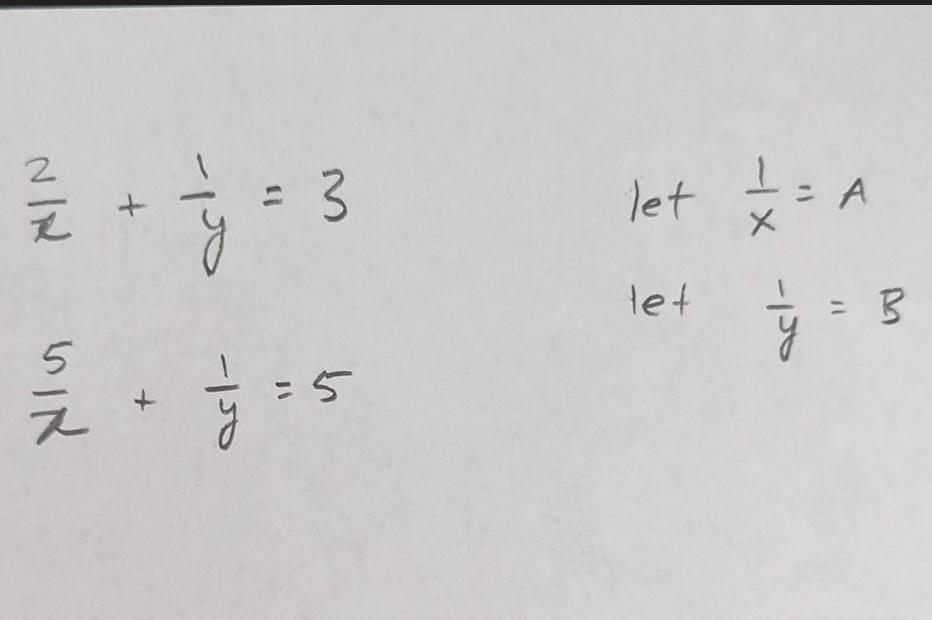 2/x + 1/y = 3
5/x + 1/y = 5
let 1/x = A
let 1/y = B